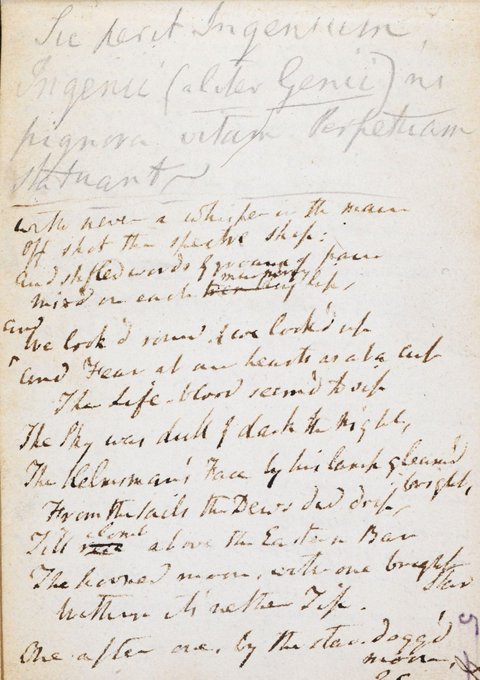 Sic perit Ingenium,
Ingenii (aliter Genii) ni
pignora vitam Perpetuam
statuant
with never a whisper in the main
Off shot the spectre ship:
And stifled words & groans of pain
mix'd on each murmuring trembling lip,
And
We look'd round & we look'd up
And Fear at our hearts as at a cup
The Life-blood seem'd to sip
The Sky was dull & dark the Night,
The Helmsman's Face by his lamp gleam'd
bright,
From the sails the Dews did drip,
Till clomb above the Eastern Bar
The horned moon, with one bright
Star
Within its nether Tip.
One after one, by the star-dogg'd
moon,